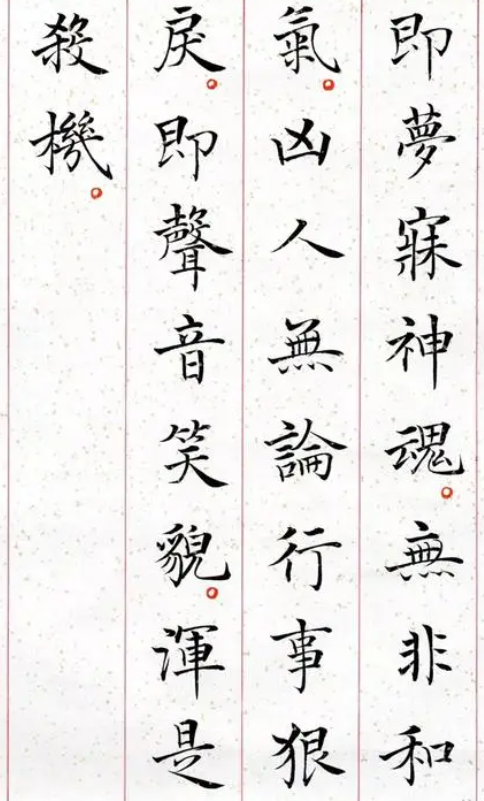 即夢寐神魂。無非和
氣。凶人無論行事狠
戾。即聲音笑貌。渾是
殺機。